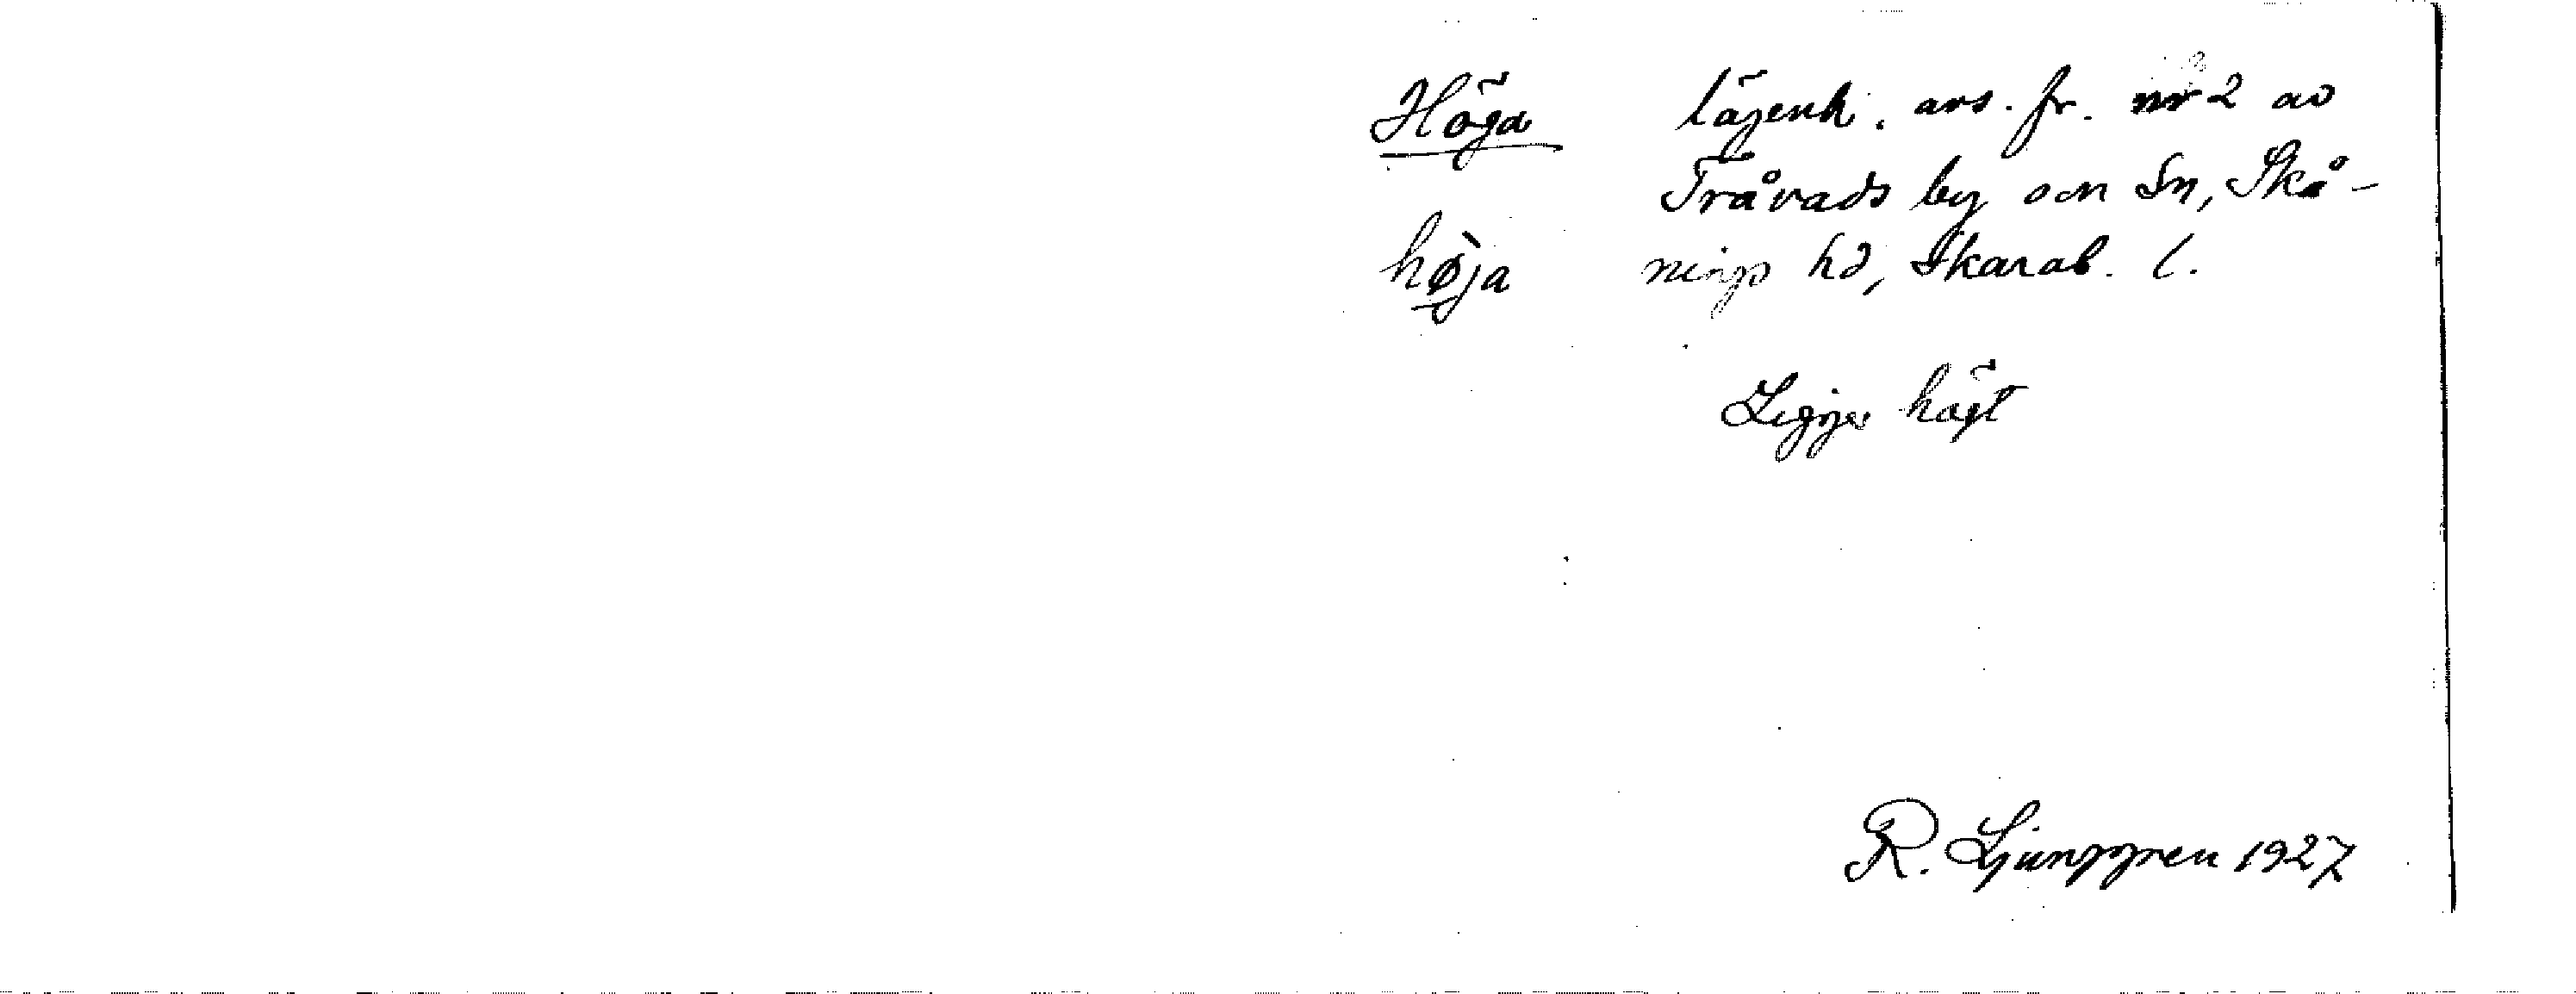 Höga lägenh. avs. fr. nr 2 av
Tråvads by och Sn, Skå-
höja nings hd, Skarab. l.
Ligger högt
R. Ljunggren 1927